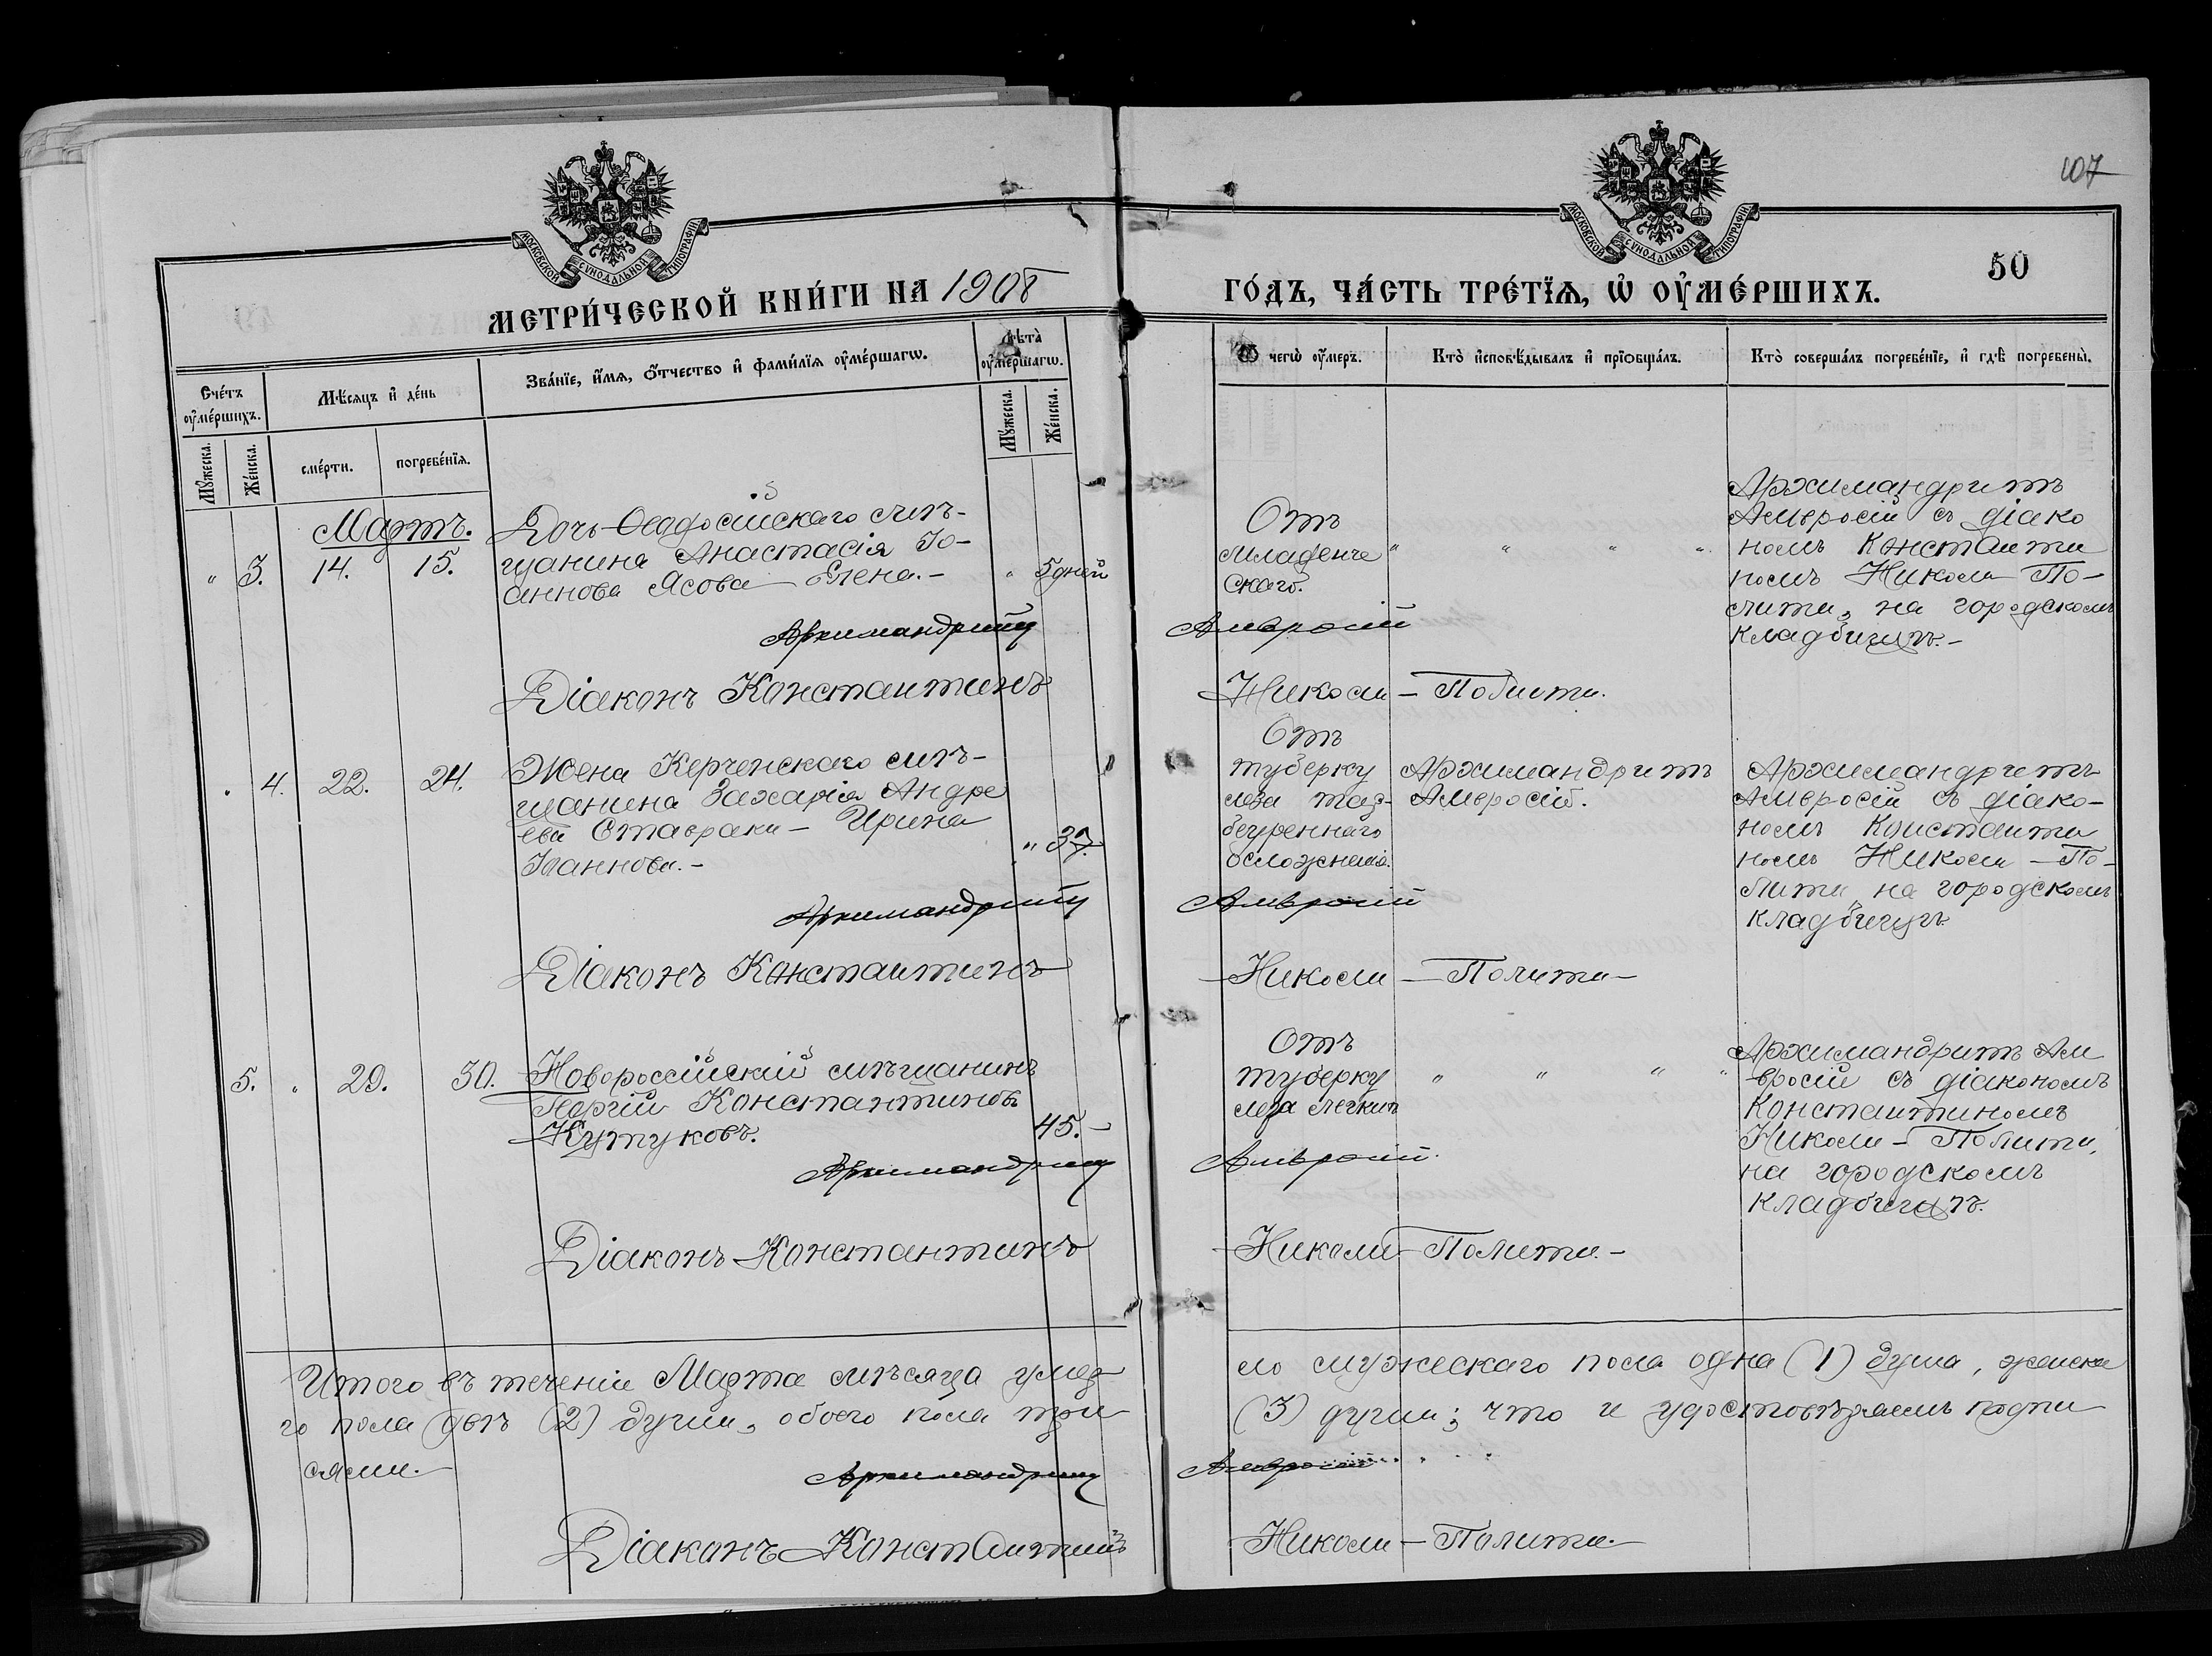 107
50
МОСКОВСКОЙ СѴНОДАЛЬНОЙ ТИПОГРАФІИ
МОСКОВСКОЙ СѴНОДАЛЬНОЙ ТИПОГРАФІИ
МЕТРИ́ЧЕСКОЙ КНИ́ГИ НА 1908 ГО́ДЪ, ЧА́СТЬ ТРЕ́ТЇѦ, Ѡ҆ ОУ҆МЕ́РШИХЪ.
Сче́тъ оу҆ме́ршихъ.
Мꙋ́жеска.
Же́нска.
Мѣ́сяцъ и҆ де́нь
сме́рти.
погребе́нїѧ.
Зва́нїе, и҆́мѧ, ѻ҆́тчество и҆ фами́лїѧ оу҆ме́ршагѡ.
Лѣ́та оу҆ме́ршагѡ.
Мꙋ́жеска.
Же́нска.
Ѿ чегѡ̀ оу҆́меръ.
Кто̀ и҆сповѣ́дывалъ и҆ прїѻбща́лъ.
Кто̀ соверша́лъ погребе́нїе, и҆ гдѣ̀ погребены̀.
Мартъ.
" 3. 14. 15.
Дочь Ѳеодосійскаго мѣ-
щанина Анастасія Іо-
аннова Ясова — Елена.-
" 5 дней
Отъ
младенче
скаго.
" " " "
Архимандритъ
Амвросій съ діако
номъ Константи
номъ Николи-По-
лити, на городскомъ
кладбищѣ.-
Архимандритъ Амвросій
Діаконъ Константинъ Николи - Полити.
" 4. 22. 24.
Жена Керченскаго мѣ-
щанина Захарія Андре
ева Ставраки - Ирина
Іоаннова.-
" 37.
Отъ
туберку
леза
осложненія.
Архимандритъ
Амвросій.
Архимандритъ
Амвросій съ діако-
номъ Константи
номъ Николи - По-
лити, на городскомъ
кладбищѣ.
Архимандритъ Амвросій
Діаконъ Константинъ Николи - Полити -
5. " 29. 30.
Новороссійскій мѣщанинъ
Георгій Константиновъ
Кутуковъ.
45. -
Отъ
туберку
леза легкихъ
" " " "
Архимандритъ Ам
вросій съ діакономъ
Константиномъ
Николи - Полити,
на городскомъ
кладбищѣ.
Архимандритъ Амвросій.
Діаконъ Константинъ Николи - Полити. -
Итого въ теченіи Марта мѣсяца умер-
ло мужескаго пола одна (1) душа, женска
го пола двѣ (2) души, обоего пола три
(3) души; что и удостовѣряемъ подпи
сями. -
Архимандритъ Амвросій
Діаконъ Константинъ Николи - Полити. -